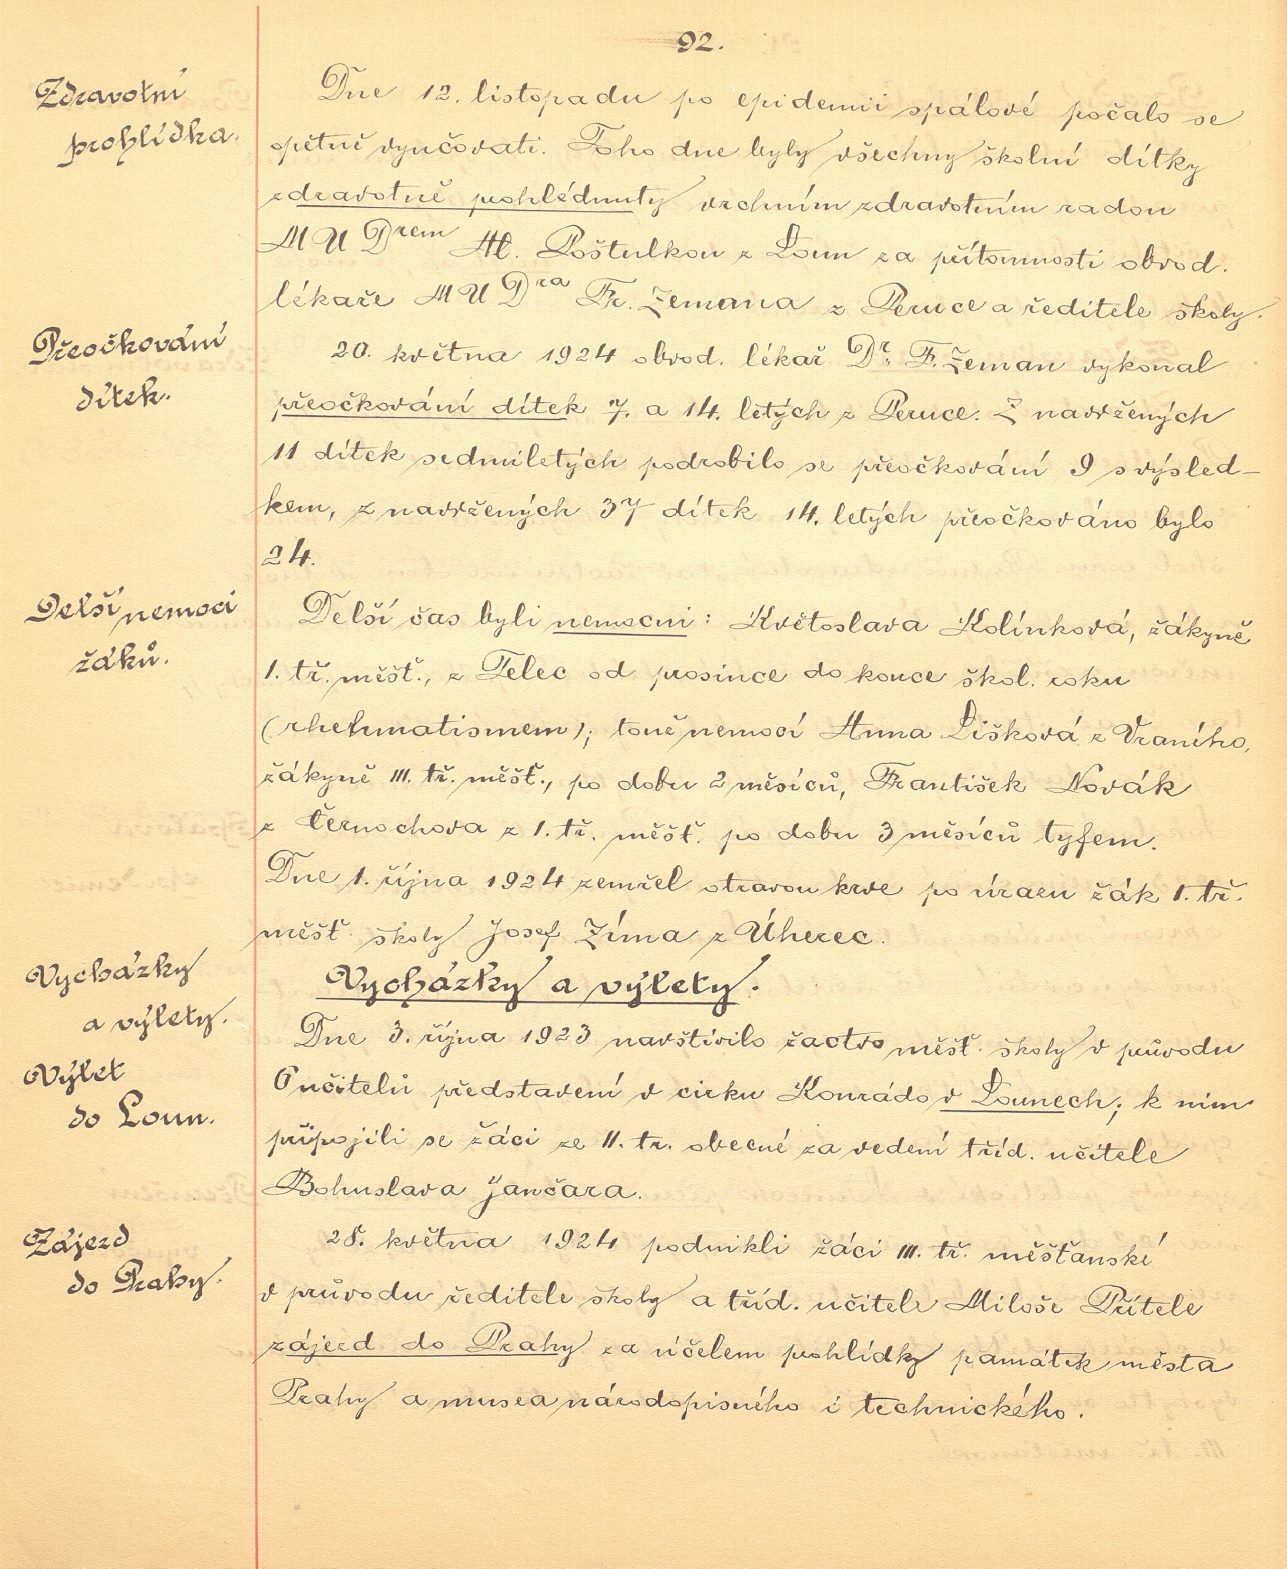 92.
Zdravotní
prohlídka.
Dne 12. listopadu po epidemii spálové počalo se
opětně vyučovati. Toho dne byly všechny školní dítky
zdravotně prohlédnuty vrchním zdravotním radou
MUDrem Al. Poštulkou z Loun za přítomnosti obvod.
lékaře MUDra Fr. Zemana z Peruce a ředitele školy.
Přeočkování
dítek.
20. května 1924 obvod. lékař Dr. F. Zeman vykonal
přeočkování dítek 7. a 14. letých z Peruce. Z navržených
11 dítek sedmiletých podrobilo se přeočkování 9 s výsled-
kem, z navržených 37 dítek 14. letých přeočkováno bylo
24.
Delší nemoci
žáků.
Delší čas byli nemocni: Květoslava Kolínková, žákyně
1. tř. měšť., z Telec od prosince do konce škol. roku
(rhehmatismem); touž nemocí Anna Lišková z Vraního,
žákyně III. tř. měšť., po dobu 2 měsíců, František Novák
z Černochova z 1. tř. měšť. po dobu 3 měsíců tyfem.
Dne 1. října 1924 zemřel otravou krve po úrazu žák 1. tř.
měšť. školy Josef Zíma z Úherec.
Vycházky
a výlety.
Vycházky a výlety.
Výlet
do Loun.
Dne 3. října 1923 navštívilo žactvo měšť. školy v průvodu
6 učitelů představení v cirku Konrádo v Lounech; k nim
připojili se žáci ze II. tr. obecné za vedení tříd. učitele
Bohuslava Jančara.
Zájezd
do Prahy.
28. května 1924 podnikli žáci III. tř. měšťanské
v průvodu ředitele školy a tříd. učitele Miloše Přítele
zájezd do Prahy za účelem prohlídky památek města
Prahy a musea národopisného i technického.